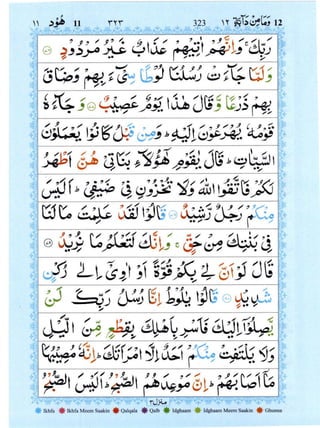 ١١ هُوْد 11 ٣٢٣ 323 وَمَا مِنْ دَآبَّةٍ ١٢ 12
رَبِّكَ ۚ وَاِنَّهُمْ اٰتِيْهِمْ عَذَابٌ غَيْرُ مَرْدُوْدٍ ﴿٧٦﴾
وَلَمَّا جَآءَتْ رُسُلُنَا لُوْطًا سِیْٓءَ بِهِمْ وَضَاقَ
بِهِمْ ذَرْعًا وَّقَالَ هٰذَا يَوْمٌ عَصِيْبٌ ﴿٧٧﴾ وَجَآءَهٗ
قَوْمُهٗ يُهْرَعُوْنَ اِلَيْهِ ؕ وَمِنْ قَبْلُ كَانُوْا يَعْمَلُوْنَ
السَّيِّاٰتِ ؕ قَالَ يٰقَوْمِ هٰٓؤُلَآءِ بَنَاتِیْ هُنَّ اَطْهَرُ
لَكُمْ فَاتَّقُوا اللّٰهَ وَلَا تُخْزُوْنِ فِیْ ضَيْفِیْ ؕ اَلَيْسَ
مِنْكُمْ رَجُلٌ رَّشِيْدٌ ﴿٧٨﴾ قَالُوْا لَقَدْ عَلِمْتَ مَا لَنَا
فِیْ بَنٰتِكَ مِنْ حَقٍّ ۚ وَاِنَّكَ لَتَعْلَمُ مَا نُرِيْدُ ﴿٧٩﴾
قَالَ لَوْ اَنَّ لِیْ بِكُمْ قُوَّةً اَوْ اٰوِیْٓ اِلٰى رُكْنٍ
شَدِيْدٍ ﴿٨٠﴾ قَالُوْا يٰلُوْطُ اِنَّا رُسُلُ رَبِّكَ لَنْ
يَّصِلُوْٓا اِلَيْكَ فَاَسْرِ بِاَهْلِكَ بِقِطْعٍ مِّنَ الَّيْلِ
وَلَا يَلْتَفِتْ مِنْكُمْ اَحَدٌ اِلَّا امْرَاَتَكَ ؕ اِنَّهٗ مُصِيْبُهَا
مَآ اَصَابَهُمْ ؕ اِنَّ مَوْعِدَهُمُ الصُّبْحُ ؕ اَلَيْسَ الصُّبْحُ
منزل ٣
Ikhfa Ikhfa Meem Saakin Qalqala Qalb Idghaam Idghaam Meem Saakin Ghunna